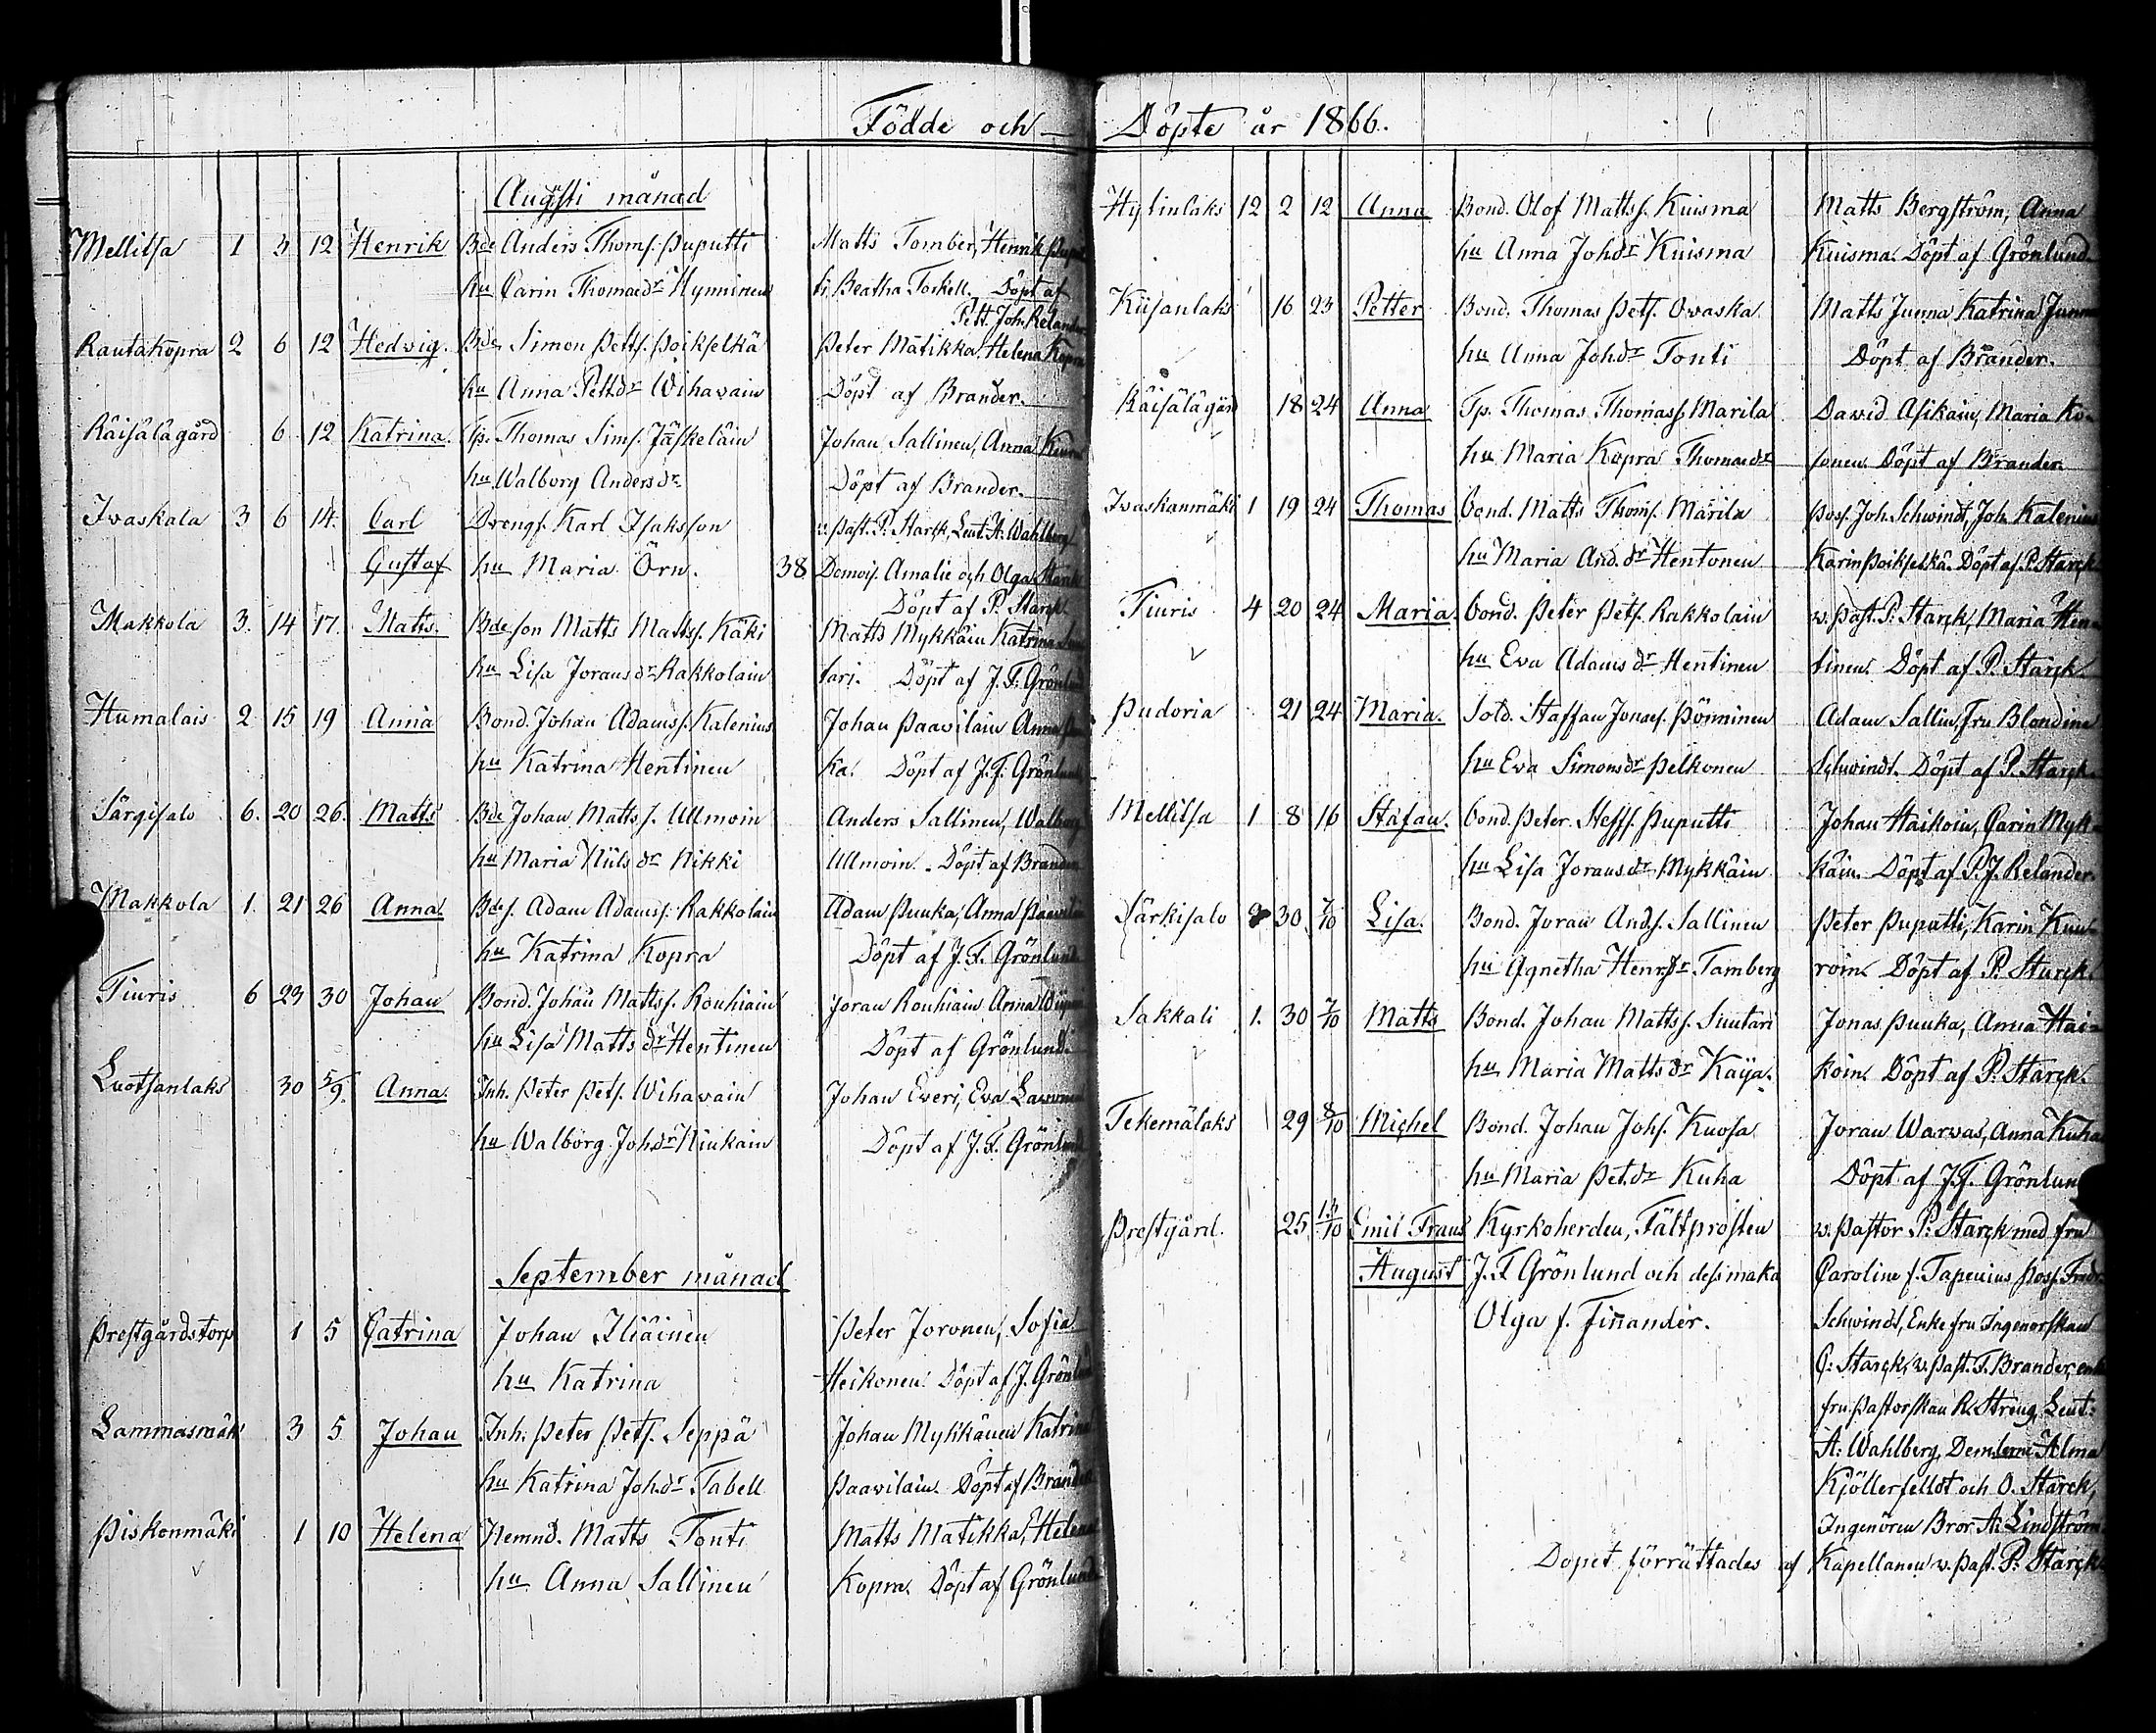 Födde och
Augusti månad
Mellilsa 1 3 12 Henrik Bde Anders Thoms. Puputti Matts Tomber, Henrik
hu Carin Thomædr Hynninen Beatha Toskell. Döpt af
Pett. Joh. Relander
Rautakopra 2 6 12 Hedvig. Bde Simon Petts. Poikselkä Peter Matikka. Helena Kopra
hu Anna Pettdr Wihavain Döpt af Brander.
Räisälägård 6 12 Katrina. Tp. Thomas Sims. Jäskeläin Johan Sallinen, Anna
hu Walborg Andersdr. Döpt af Brander.
Ivaskala 3 6 14. Carl Drengs. Karl Isaksson v. Past. P. Starck, Leut. A. Wahlberg
Gustaf hu Maria Örn. 38 Demois. Amalie och Olga Starck
Döpt af P. Starck.
Makkola 3. 14 17. Matts. Bdeson Matts Matts. Käki Matts Mykkäin Katrina
hu Lisa Joransdr Rakkolain tari. Döpt af J. F. Grönlund
Humalais 2 15 19 Anna Bond. Johan Adamss. Kalenius Johan Paavilain Anna
hu Katrina Hentinen ka. Döpt af J. F. Grönlund
Särgisalo 6. 20 26. Matts Bde Johan Matts s. Ullmoin Anders Sallinen, Walborg
hu Maria Niilsdr Nikki Ullmoin. Döpt af Brander
Makkola 1. 21 26 Anna. Bdes. Adam Adamss. Rakkolain Adam Puuka, Anna Paavilain
hu Katrina Kopra Döpt af J. F. Grönlund.
Tiuris 6 23 30 Johan Bond. Johan Mattss. Rouhiain Joran Rouhiain Anna
hu Lisa Mattsdr Hentinen Döpt af Grönlund
Luotsanlaks 30 5/9. Anna. Inh. Peter Pets. Wihavain Johan Everi, Eva
hu Walborg Johdr Niukain Döpt af J. F. Grönlund
September månad
Prestgårdstorp 1 5 Catrina Johan Iliäinen Peter Joronen, Sofia
hu Katrina Heikonen. Döpt af J. Grönlund
Lammasmäk 3 5 Johan Inh. Peter Pets. Seppä Johan Mykkänen Katrina
hu Katrina Johdr Tabell Paavilain. Döpt af Brander
Piskonmäki 1 10 Helena Nemnd. Matts Tonti Matts Matikka, Helena
hu Anna Sallinen Kopra. Döpt af Grönlund
Döpte år 1866.
Hytinlaks 12 2 12 Anna Bond. Olof Mattss. Kuisma Matts Bergström, Anna
hu Anna Johdr Kuisma Kuisma. Döpt af Grönlund.
Kiisanlaks 16 23 Petter Bond. Thomas Pets. Ovaska Matts Junna Katrina Junna
hu Anna Johdr Tonti Döpt af Brander.
Räisälägård 18 24 Anna Tp. Thomas Thomass. Marila David Asikain, Maria Ko-
hu Maria Kopra Thomædr sonen. Döpt af Brander.
Ivaskanmäki 1 19 24 Thomas Bond. Matts Thoms. Marila Poss. Joh. Schwindt, Joh. Kalenius
hu Maria And.dr Hentonen Karin Poikselkä. Döpt af P. Starck
Tiuris 4 20 24 Maria. Bond. Peter Pets. Rakkolain v. Past. P. Starck, Maria Hen-
hu Eva Adamsdr Hentinen tinen. Döpt af P. Starck.
Pudoria 21 24 Maria. Sold. Staffan Jonass. Pönninen Adam Sallin, Fru Blondina
hu Eva Simonsdr Pelkonen Schwindt. Döpt af P. Starck.
Mellilsa 1 8 16 Stafan. Bond. Peter Steffs. Puputti Johan Haikoin, Carin Myk-
hu Lisa Joransdr Mykkäin käin. Döpt af P. J. Relander.
Särkisalo 30 7/10 Lisa. Bond. Joran Ands. Sallinen Peter Puputti, Karin
hu Agnetha Henrdr. Tamberg roin. Döpt af P. Starck.
Sakkali 1. 30 7/10 Matts Bond. Johan Mattss. Suutari Jonas Puuka, Anna Hai-
hu Maria Mattsdr Käyä. koin. Döpt af P. Starck.
Tekemälaks 29 8/10 Michel Bond. Johan Johs. Kuosa Joran Warvas, Anna Kuha
hu Maria Pet.dr Kuha Döpt af J. F. Grönlund
Prestgård. 25 13/10 Emil Frans Kyrkoherden, Fältprosten v. Pastor P. Starck med fru
August J. F Grönlund och dess maka Caroline f. Tapenius, Poss. Fredr.
Olga f. Finander. Schwindt, Enke fru Ingenörskan
C. Starck, v. Past. F. Brander, enke
fru Pastorskan R. Streng, Leut.
A. Wahlberg, Demlerne Alma
Kjöllerfeldt och O. Starck,
Ingenören Bror A. Lindström.
Dopet förrättades af Kapellanen v. Past. P. Starck.